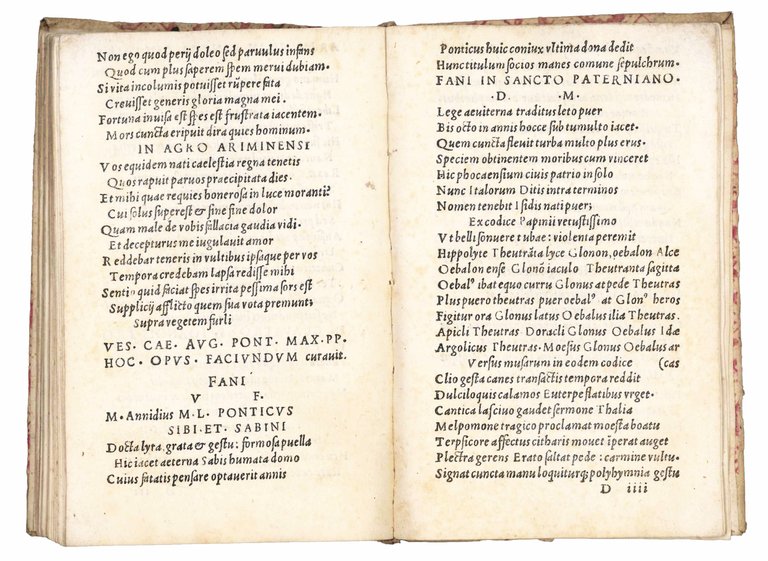 Non ego quod perij doleo sed paruulus infans
Quod cum plus saperem spem merui dubiam.
Si vita incolumis potuisset rūpere fata
Creuisset generis gloria magna mei.
Fortuna inuisa est spes est frustrata iacentem.
Mors cuncta eripuit dira quies hominum.
IN AGRO ARIMINENSI
Vos equidem nati caelestia regna tenetis
Quos rapuit paruos praecipitata dies.
Et mihi quae requies honerosa in luce moranti?
Cui solus superest & sine fine dolor
Quam male de vobis fallacia gaudia vidi.
Et decepturus me iugulauit amor
Reddebar teneris in vultibus ipsaque per vos
Tempora credebam lapsa redisse mihi
Sentio quid faciat spes irrita pessima sors est
Supplicij afflicto quem sua vota premunt;
Supra vegetem furli
VES. CAE. AVG. PONT. MAX. PP.
HOC. OPVS. FACIVNDVM curauit.
FANI
V F.
M. Annidius M. L. PONTICVS
SIBI. ET. SABINI
Docta lyra, grata & gestu: formosa puella
Hic iacet aeterna Sabis humata domo
Cuius fatatis pensare optauerit annis
Ponticus huic coniux vltima dona dedit
Hunc titulum socios manes comune sepulchrum.
FANI IN SANCTO PATERNIANO.
.D. .M.
Lege aeuiterna traditus leto puer
Bis octo in annis hocce sub tumulto iacet.
Quem cuncta fleuit turba multo plus erus.
Speciem obtinentem moribus cum vinceret
Hic phocaensium ciuis patrio in solo
Nunc Italorum Ditis intra terminos
Nomen tenebit Isidis nati puer;
Ex codice Papinii vetustissimo
Vt belli sonuere tubae: violenta peremit
Hippolyte Theutrāta lyce Glonon, oebalon Alce
Oebalon ense Glonō iaculo Theutranta sagitta
Oebalꝰ ibat equo curru Glonus at pede Theutras
Plus puero theutras puer oebalꝰ at Glonꝰ heros
Figitur ora Glonus latus Oebalus ilia Theutras.
Apicli Theutras Doracli Glonus Oebalus Idae
Argolicus Theutras. Moesus Glonus Oebalus ar
Versus musarum in eodem codice (cas
Clio gesta canes transactis tempora reddit
Dulciloquis calamos Euterpe flatibus vrget.
Cantica lasciuo gaudet sermone Thalia
Melpomene tragico proclamat moesta boatu
Terpsicore affectus citharis mouet īperat auget
Plectra gerens Erato saltat pede : carmine vultu.
Signat cuncta manu loquiturq; polyhymnia gestu
D iiii